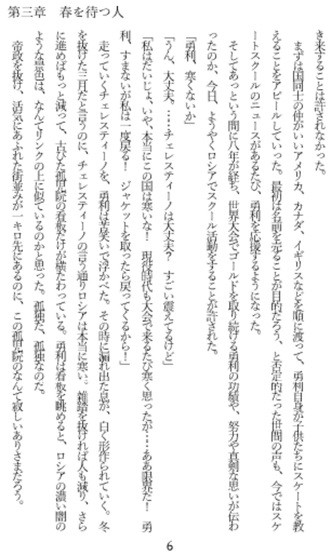 第三章　春を待つ人
き来することは許されなかった。
　まずは国同士の仲がいいアメリカ、カナダ、イギリスなどを順に渡って、勇利自身が子供たちにスケートを教
えることをアピールしていった。最初は名前を売ることが目的だろう、と否定的だった世間の声も、今ではスケ
ートスクールのニュースがあるたび、勇利を応援するようになった。
　そしてあっという間に八年が経ち、世界大会でゴールドを取り続ける勇利の功績や、努力や真剣な思いが伝わ
ったのか、今日、ようやくロシアでスクール活動をすることが許された。
「勇利、寒くないか」
「うん、大丈夫。……チェレスティーノは大丈夫？　すごい震えてるけど」
「私はだいじょ、いや、本当にこの国は寒いな！　現役時代も大会で来るたび寒く思ったが……ああ限界だ！　勇
利、すまないが私は一度戻る！　ジャケットを取ったら戻ってくるから！」
　走っていくチェレスティーノを、勇利は苦笑いで浮かべた。その時に漏れ出た息が、白く形作られていく。冬
を抜けた三月だと言うのに、チェレスティーノの言う通りロシアは本当に寒い。雑踏を抜ければ人も減り、さら
に進めばもっと減って、古びた孤児院の看板だけが横たわっている。勇利は看板を眺めると、ロシアの濃い闇の
ような景色は、なんてリンクの上に似ているのかと思った。孤独だ、孤独なのだ。
　帝政を抜け、活気にあふれた街並みが一キロ先にあるのに、この孤児院のなんて寂しいありさまだろう。
6